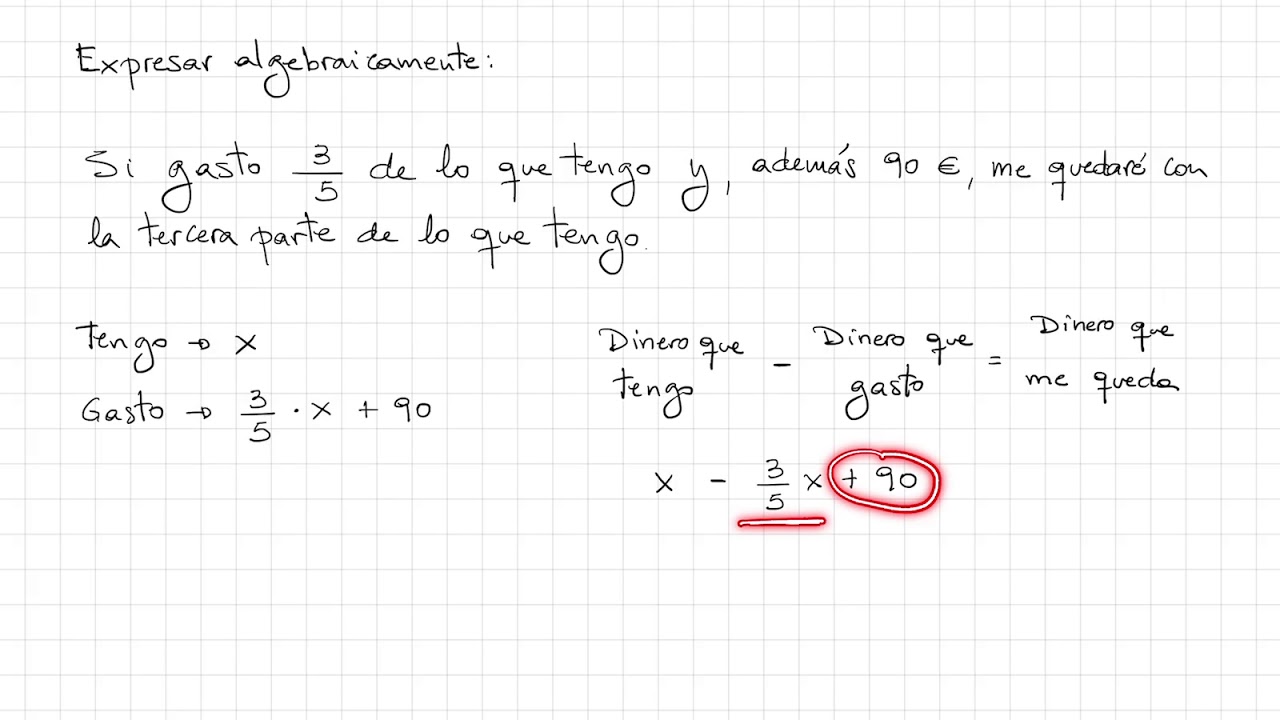 Expresar algebraicamente:
Si gasto 3/5 de lo que tengo y, además 90 €, me quedaré con
la tercera parte de lo que tengo.
Tengo → x
Gasto → 3/5 · x + 90
Dinero que tengo - Dinero que gasto = Dinero que me queda
x - 3/5 x + 90